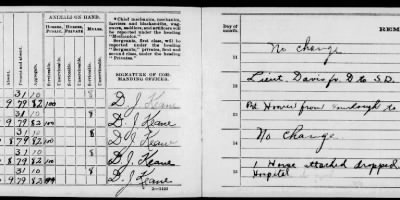 ANIMALS ON HAND.
HORSES, PUBLIC.
HORSES, PRIVATE
MULES.
Absent.
Present and absent.
Aggregate.
Serviceable.
Unserviceable.
Serviceable.
Unserviceable.
Serviceable.
Unserviceable.
*Chief mechanics, mechanics,
farriers and blacksmiths, wag-
oners, saddlers, and artificers will
be reported under the heading
"Mechanics."
Sergeants, first class, will be
reported under the heading
"Sergeants," privates, first and
second class, under the heading
"Privates."
SIGNATURE OF COM-
MANDING OFFICER.
31 10 8
9 79 82 100 D. J. Keane
31 10 8
9 79 82 100 D. J. Keane
31 10 8
79 82 100 D. J. Keane
31 10 8
8 79 82 100 D. J. Keane
31 10 8
9 79 82 D. J. Keane
Day of
month.
REM
11 No change
12 Lieut. Davis fr D to S.D.
13 Horses from to
14 No change
15 1 Horse attached dropped
Hospital